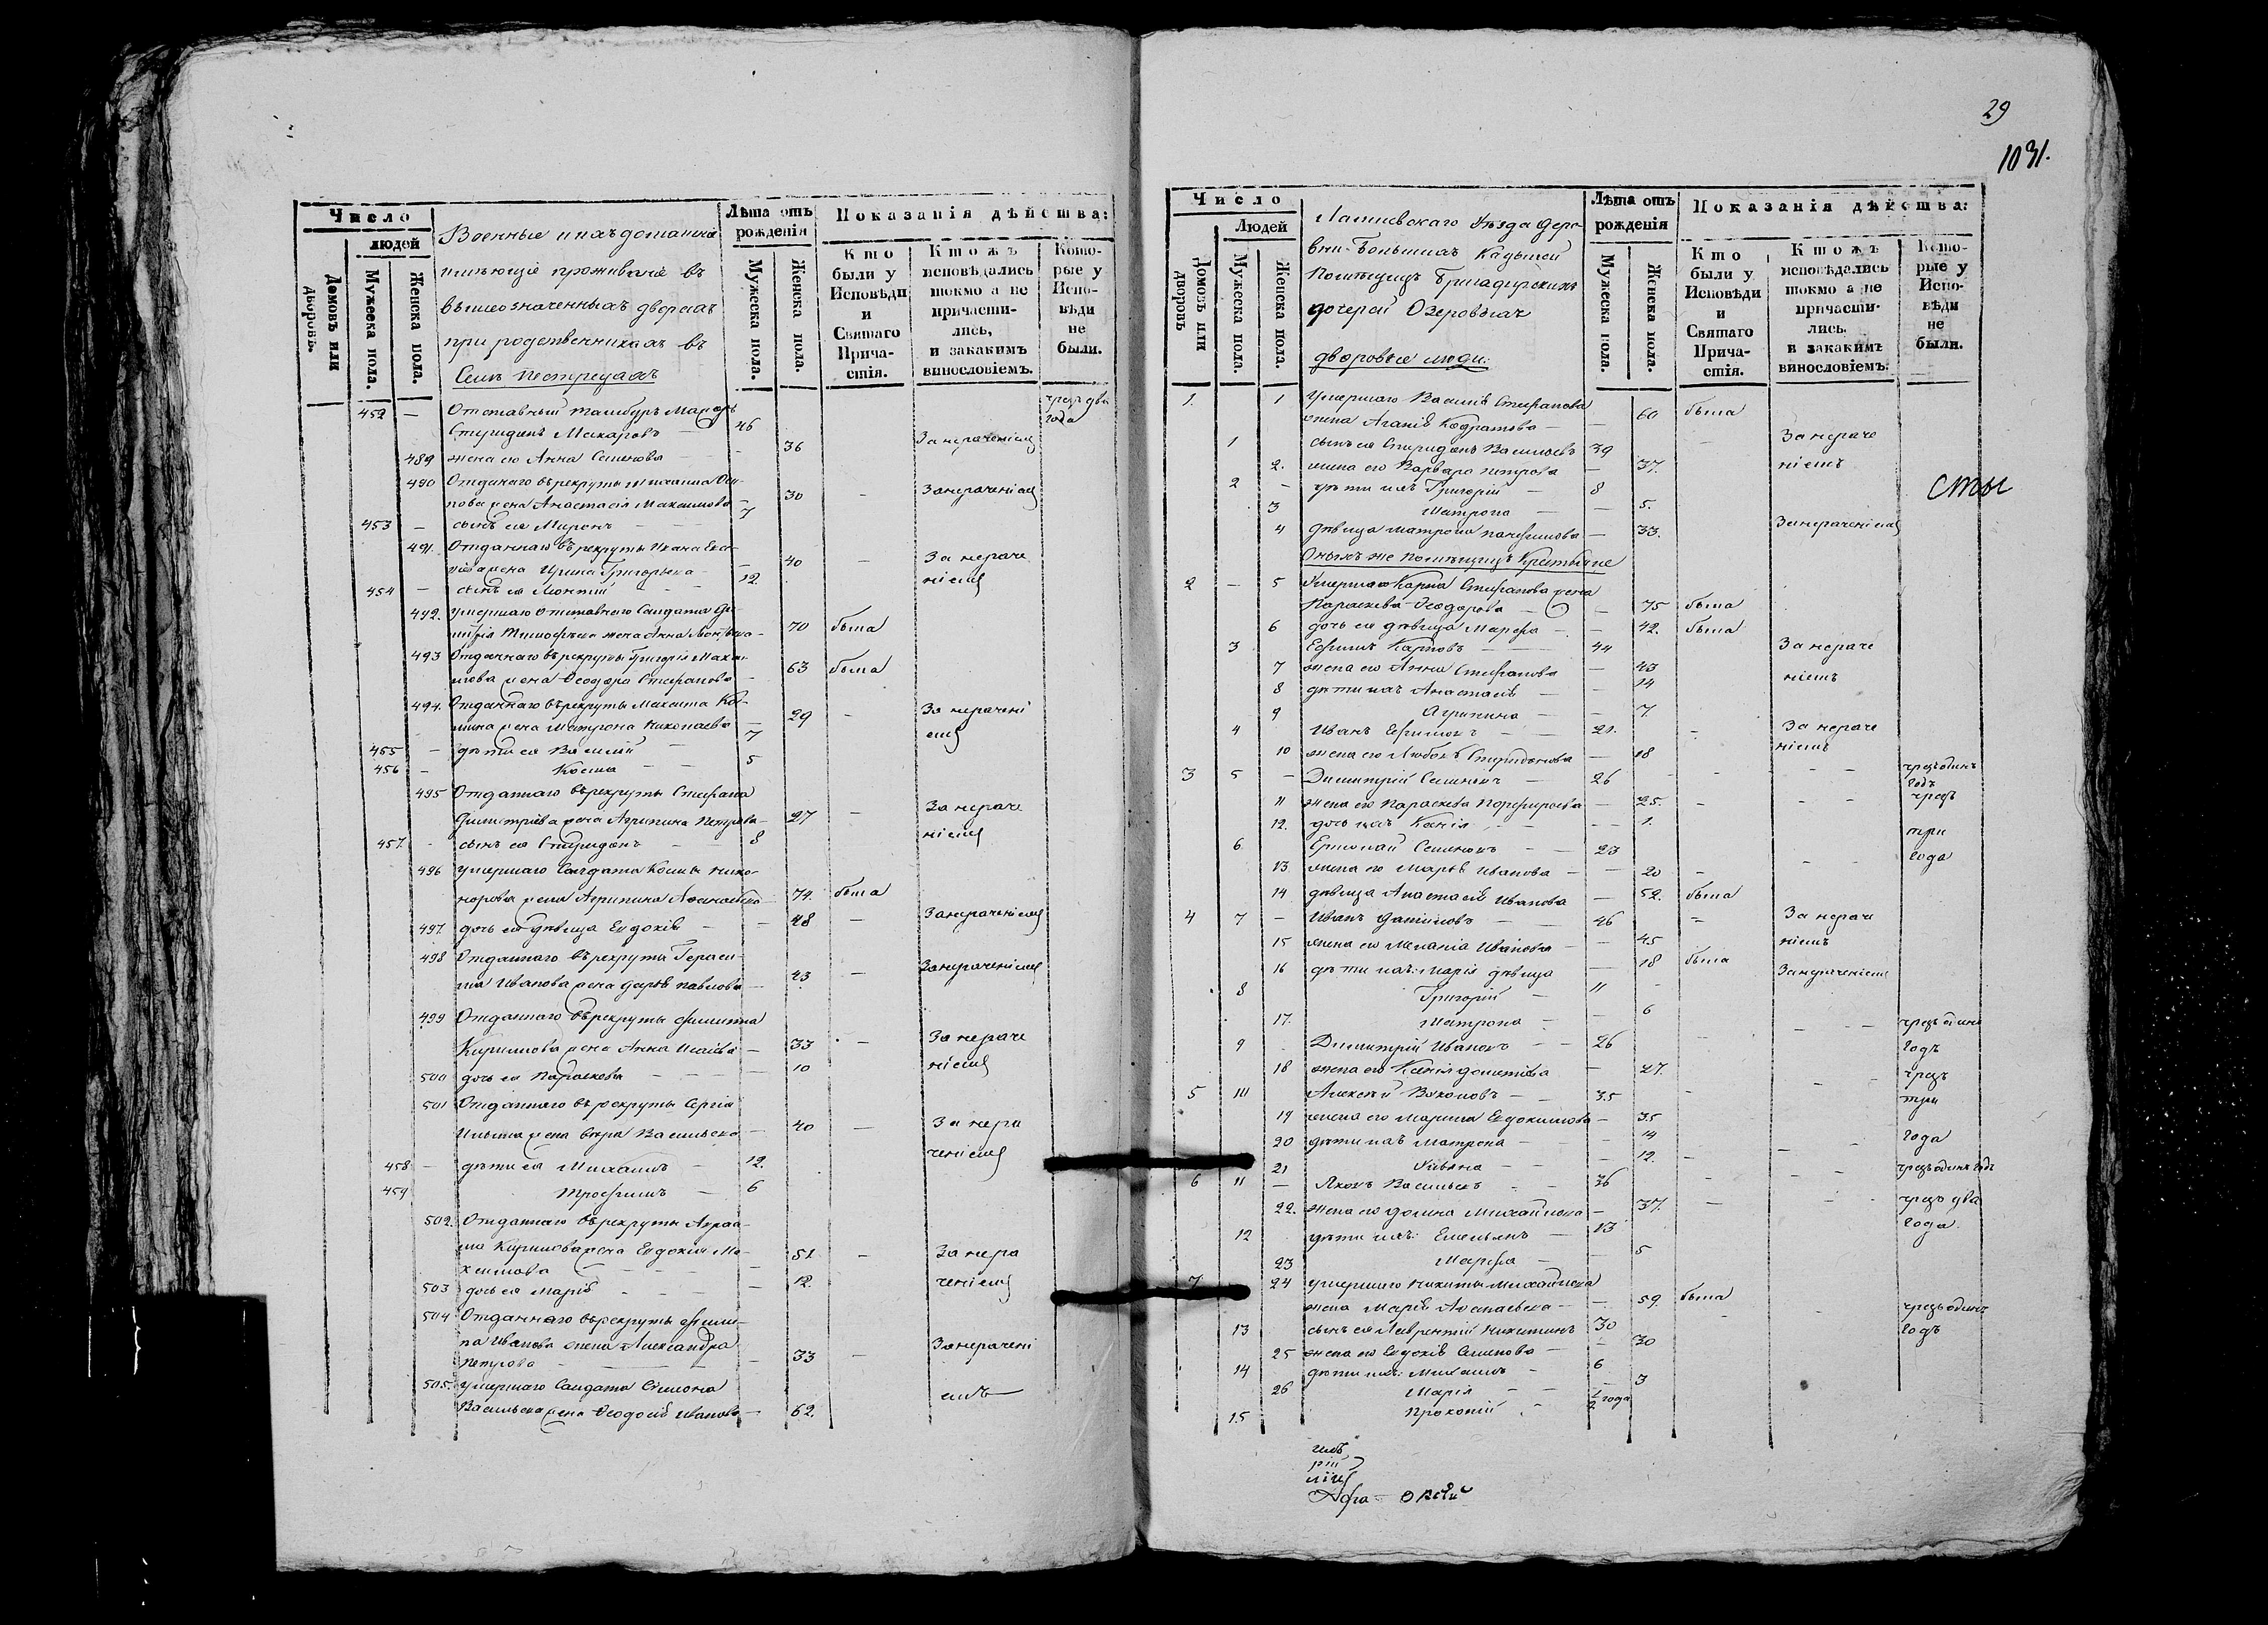 Число
людей
Домовъ или дворовъ.
Мужеска пола.
Женска пола.
Военные и ихъ домашнія
имѣющіе проживаніе въ
вышеозначенныхъ дворахъ
при родственникахъ въ
Селѣ Пестрецахъ
Лѣта отъ рожденія
Мужеска пола.
Женска пола.
Показанія дѣйства:
Кто были у Исповѣди и Святаго Прича-стія.
Кто жъ исповѣдались токмо а не причасти-лись, и закакимъ винословіемъ.
Кото-рые у Испо-вѣди не были.
452 — Отставный Тамбуръ Маіоръ чрезъ два
Спиридонъ Макаровъ — 46 года
489 жена его Анна Семенова — 36 За нераченіемъ
490 Отданаго въ рекруты Михаила Оси-
пова жена Анастасія Максимова — 30 — За нераченіемъ
453 — сынъ ея Миронъ — 7
491. Отданнаго въ рекруты Ивана
жена Ирина Григорьева — 40 — За нераче
454 — сынъ ея Леонтій — 12. ніемъ
492. умершаго отставного Салдата Ди-
митрія Тимофѣева жена Анна — 70 была
493 Отданнаго въ рекруты Григорія Макси-
мова жена Ѳеодора Стефанова — 63 была
494. Отданнаго въ рекруты Никиты
жена Матрона Николаева — 29 — За нерачені
455 — дѣти ея Василій — 7 емъ
456 — Косма — 5
495 Отданнаго въ рекруты Стефана
Димитріева жена Агрипина Петрова — 27 — За нераче
457. — сынъ ея Спиридонъ — 8 ніемъ
496 умершаго Салдата Космы Ника-
норова жена Агрипина Аѳанасьева 74. была
497. дочь ея дѣвица Евдокія — 48 — За нераченіемъ
498 Отданнаго въ рекруты Гераси-
ма Иванова жена Дарья Павлова — 43 — За нераченіемъ
499 Отданнаго въ рекруты Филиппа
Кирилова жена Анна Исаіева — 33 — За нераче
500 дочь ея Параскева — 10 ніемъ
501 Отданнаго въ рекруты Сергія
Ильина жена Вѣра Васильева — 40 — За нера
458 — дѣти ея Михаилъ — 12. ченіемъ
459 Трофимъ — 6
502. Отданнаго въ рекруты Абраа-
ма Кирилова жена Евдокія Ма-
ксимова — 51. — За нера
503 дочь ея Марія — 12. ченіемъ
504 Отданнаго въ рекруты Фили-
па Иванова жена Александра
Петрова — 33 — За нерачені
505. умершаго Салдата Симеона емъ
Васильева жена Ѳеодосія Иванова — 62.
29
1031.
Число
Людей
Домовъ или дворовъ
Мужеска пола.
Женска пола.
Лаишевскаго Уѣзда дере-
вни Большихъ Кадышей
Помѣщицъ Бригадирскихъ
дочерей Озеровыхъ
дворовые люди.
Лѣта отъ рожденія
Мужеска пола.
Женска пола.
Показанія дѣйства:
Кто были у Исповѣди и Святаго Прича-стія.
Кто жъ исповѣдались токмо а не причасти-лись. и закакимъ винословіемъ.
Кото-рые у Испо-вѣди не были.
1. 1 Умершаго Василія Стефанова
жена Агапія Кодратова — 60 была
1 сынъ ея Спиридонъ Васильевъ 39 — За нераче
2. жена его Варвара Петрова — 37. ніемъ
2 — дѣти ихъ Григорій — 8
сты
3 Матрона — 5.
4 дѣвица Матрона Панфилова — 33. За нераченіемъ
Оныхъ же Помѣщицъ Крестьяне
2 — 5 Умершаго Карпа Стефанова жена
Параскева Ѳеодорова — 75 была
6 дочь ея дѣвица Марфа — 42. была
3 Ефимъ Карповъ — 44 За нераче
7 жена его Анна Стефанова — 43 ніемъ
8 дѣти ихъ Анастасія — 14
9 Агрипина — 7.
4 Иванъ Ефимовъ — 21. — За нераче
10 жена его Любовь Спиридонова — 18 ніемъ
3 5 — Димитрій Семеновъ — 26 — чрезъ одинъ годъ
11 жена его Параскева Порфирьева — 25. — чрезъ
12. дочь ихъ Ксенія — 1. три
6 Ермолай Семеновъ — 23 года
13 жена его Марья Иванова — 20 —
14 дѣвица Анастасія Иванова — 52. была
4 7 — Иванъ Даниловъ — 46 — За нераче
15 жена его Меланіа Иванова — 45 ніемъ
16 дѣти ихъ: Марія дѣвица — 18 была За нераченіемъ
8 Григорій — 11
17. Матрона — 6
9 Димитрій Ивановъ — 26 — чрезъ одинъ годъ
18 жена его Ксенія — 27. чрезъ
5 10 Алексѣй — 35 — три
19 жена его Марина Евдокимова — 35
20 дѣти ихъ Матрона — 14 года
21 — 12.
6 11 — Яковъ Васильевъ — 36 чрезъ одинъ годъ
22. жена его Домна Михайлова — 37. — чрезъ два
12 дѣти ихъ: Емельянъ — 13 года
23 Марфа — 5
7 24 умершаго Никиты Михайлова
жена Марія Аѳанасьева — 59. была
13 сынъ ея Лаврентій Никитинъ 30 — чрезъ одинъ
25 жена его Евдокія Семенова — 30 годъ
14 дѣти ихъ: Михаилъ — 6
26 Марія — 3
15 Прокопій — ½ года